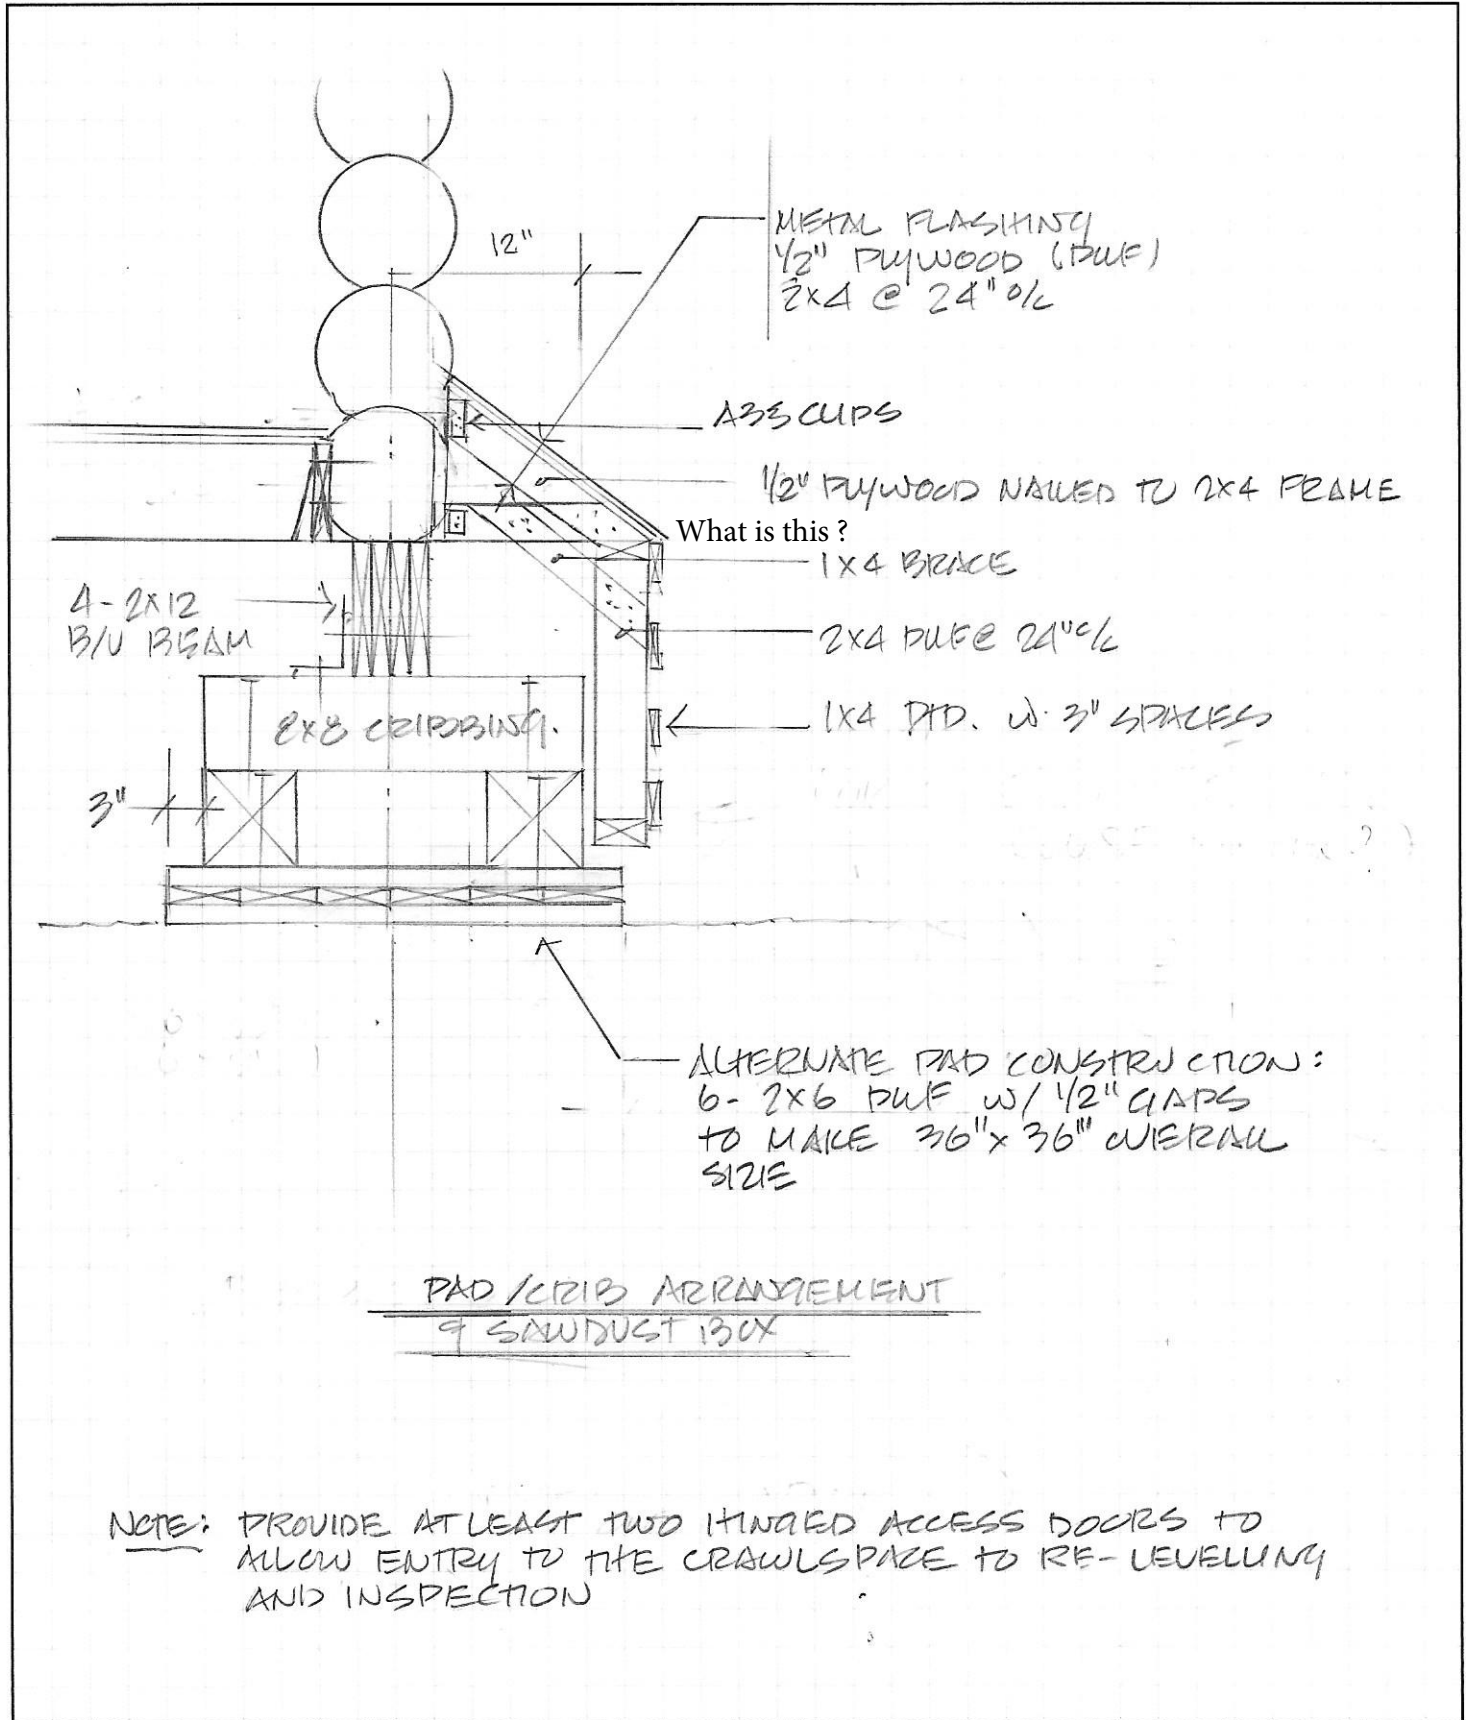 12"
METAL FLASHING
1/2" PLYWOOD (PWF)
2x4 @ 24" o/c
A35 CLIPS
1/2" PLYWOOD NAILED TO 2x4 FRAME
What is this ?
1x4 BRACE
4-2x12
B/U BEAM
2x4 PWF @ 24" o/c
8x8 CRIBBING.
1x4 PTD. W. 3" SPACES
3"
ALTERNATE PAD CONSTRUCTION:
6- 2x6 PWF W/ 1/2" GAPS
TO MAKE 36"x 36" OVERALL
SIZE
PAD /CRIB ARRANGEMENT
SAWDUST BOX
NOTE: PROVIDE AT LEAST TWO HINGED ACCESS DOORS TO
ALLOW ENTRY TO THE CRAWLSPACE TO RE-LEVELLING
AND INSPECTION